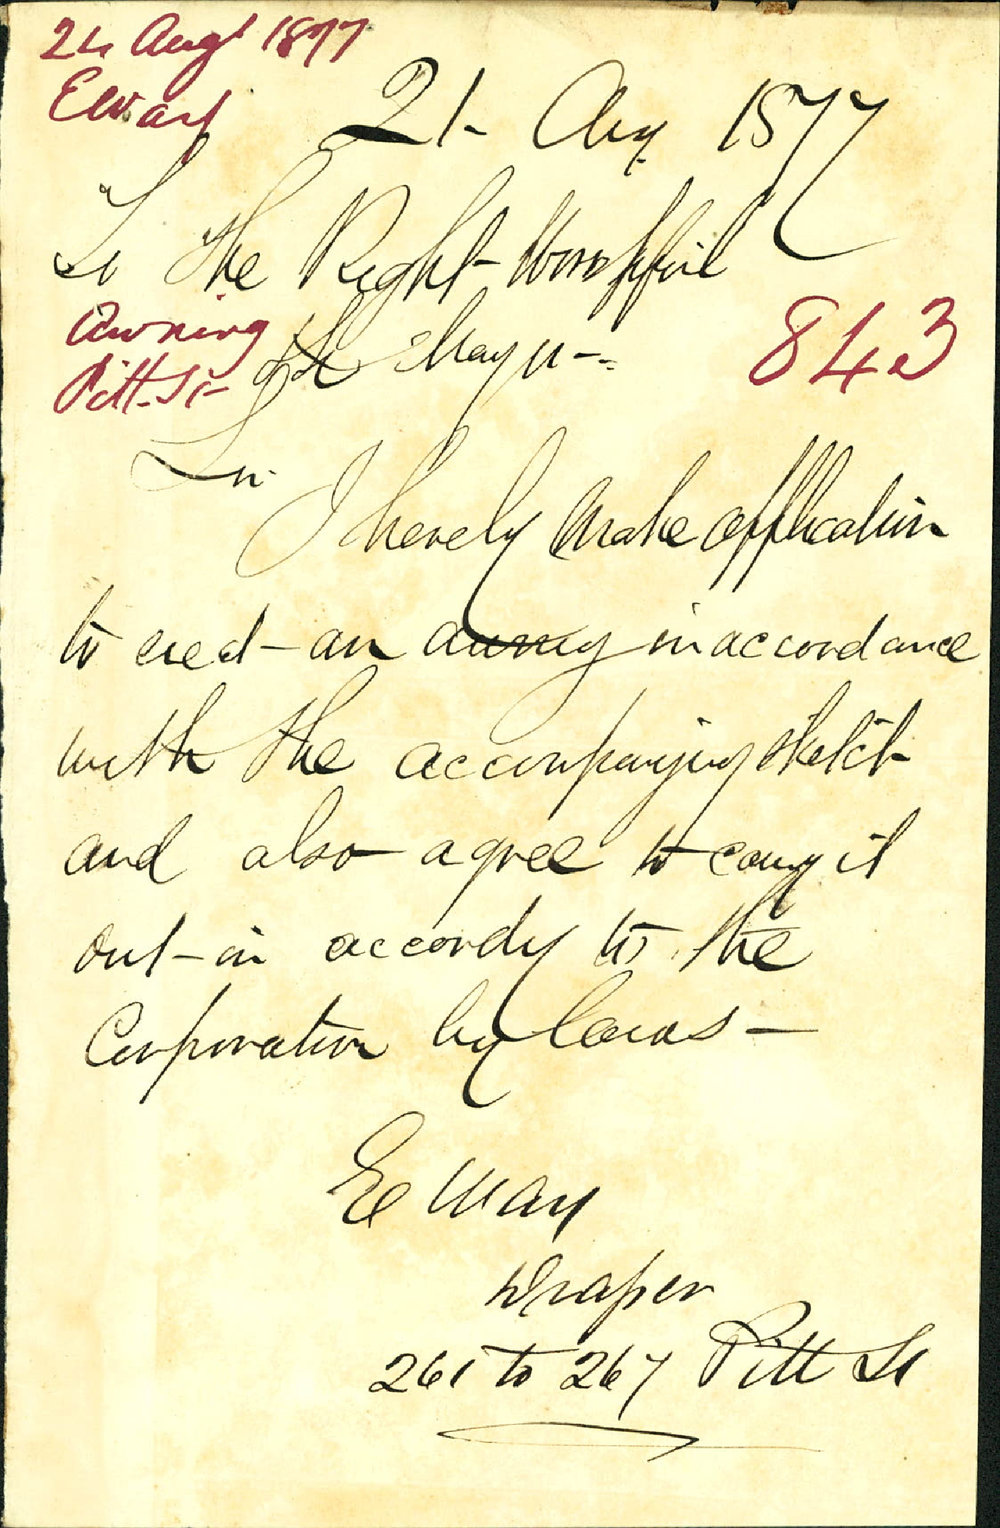 24 Augt 1877
E Way
21 Aug 1877
To the Right Worshpful
the Mayor
Awning
Pitt St
843
Sir
I hereby make application
to erect an awning in accordance
with the accompanying sketch
and also agree to carry it
out in accordy to the
Corporation by laws
E Way
Draper
261 to 267 Pitt St